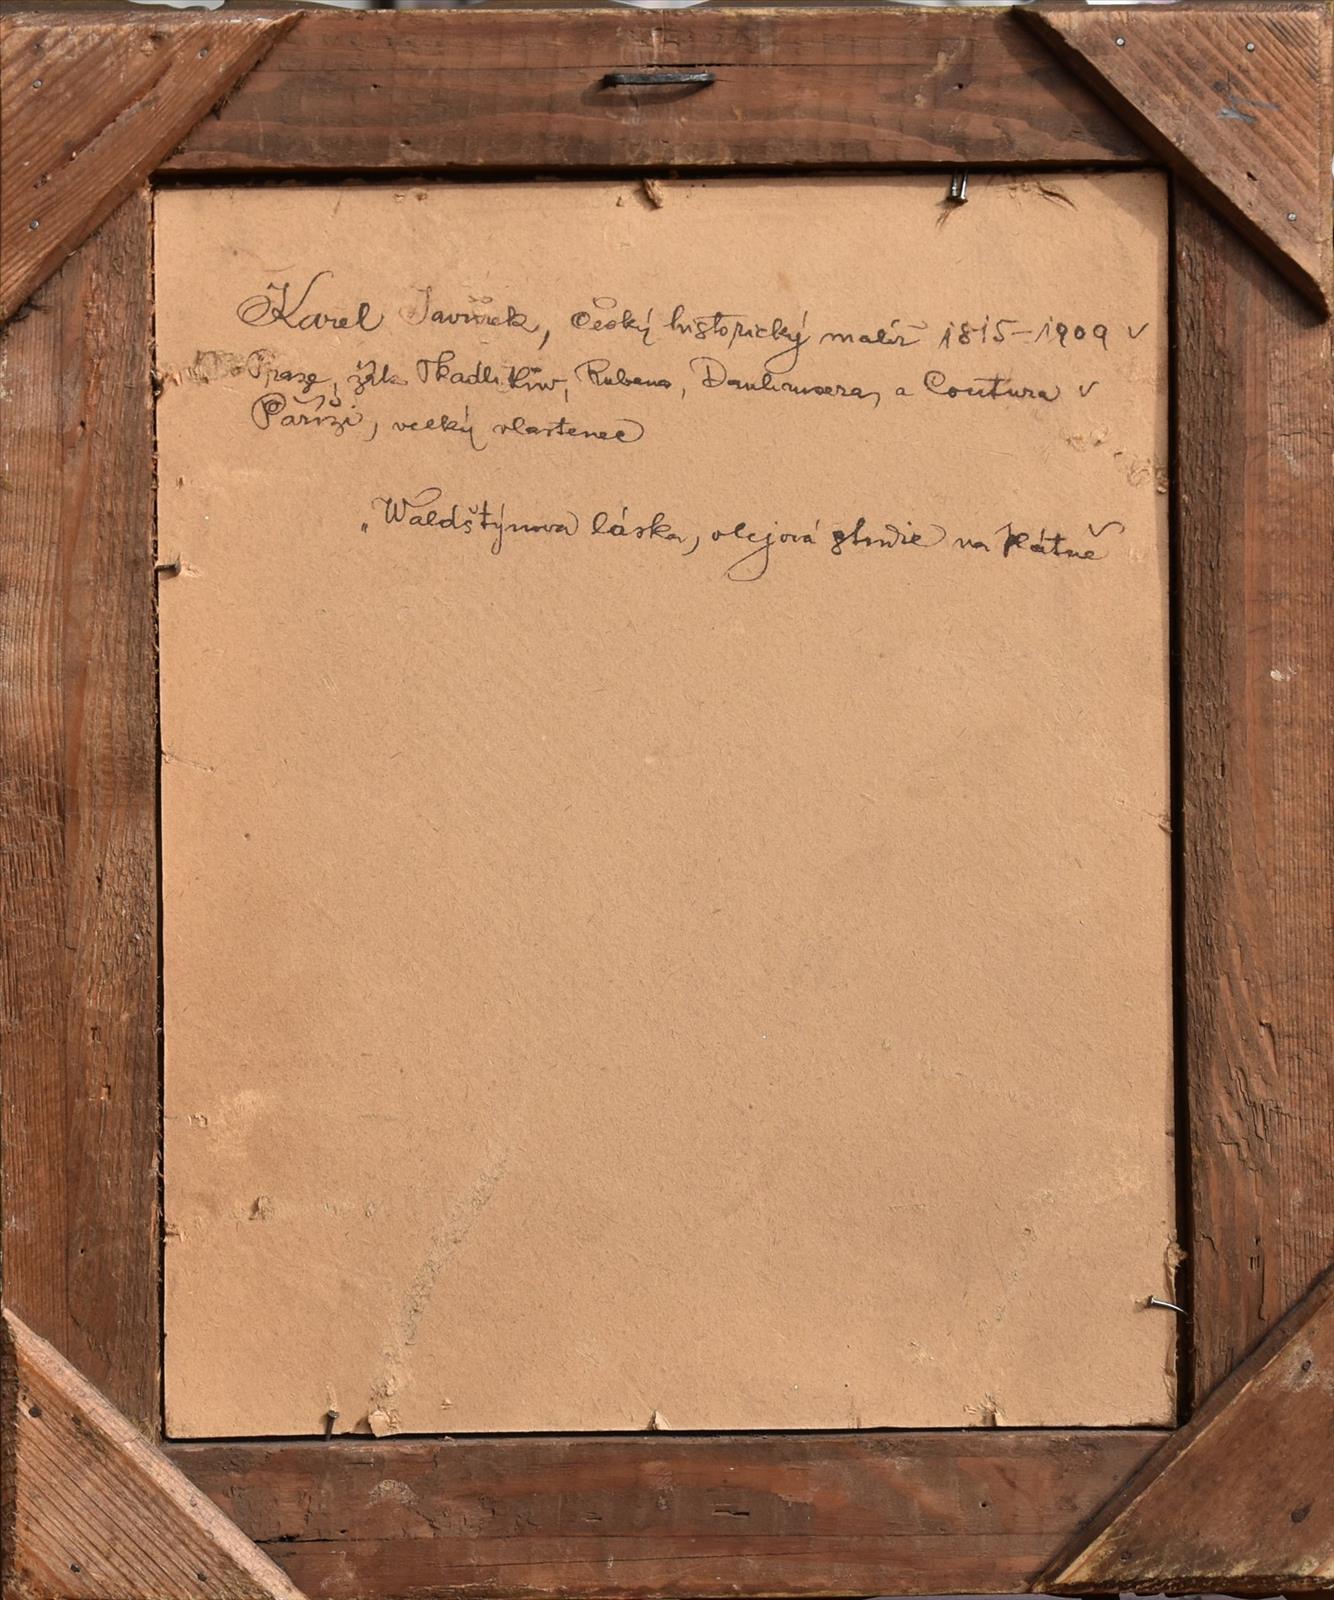 Karel Javůrek, český historický malíř 1815-1909 v
Praze, žák Tkadlíkův, Rubena, Danhausera, a Coutura v
Paříži, velký vlastenec
„Waldštýnova láska, olejová studie na plátně